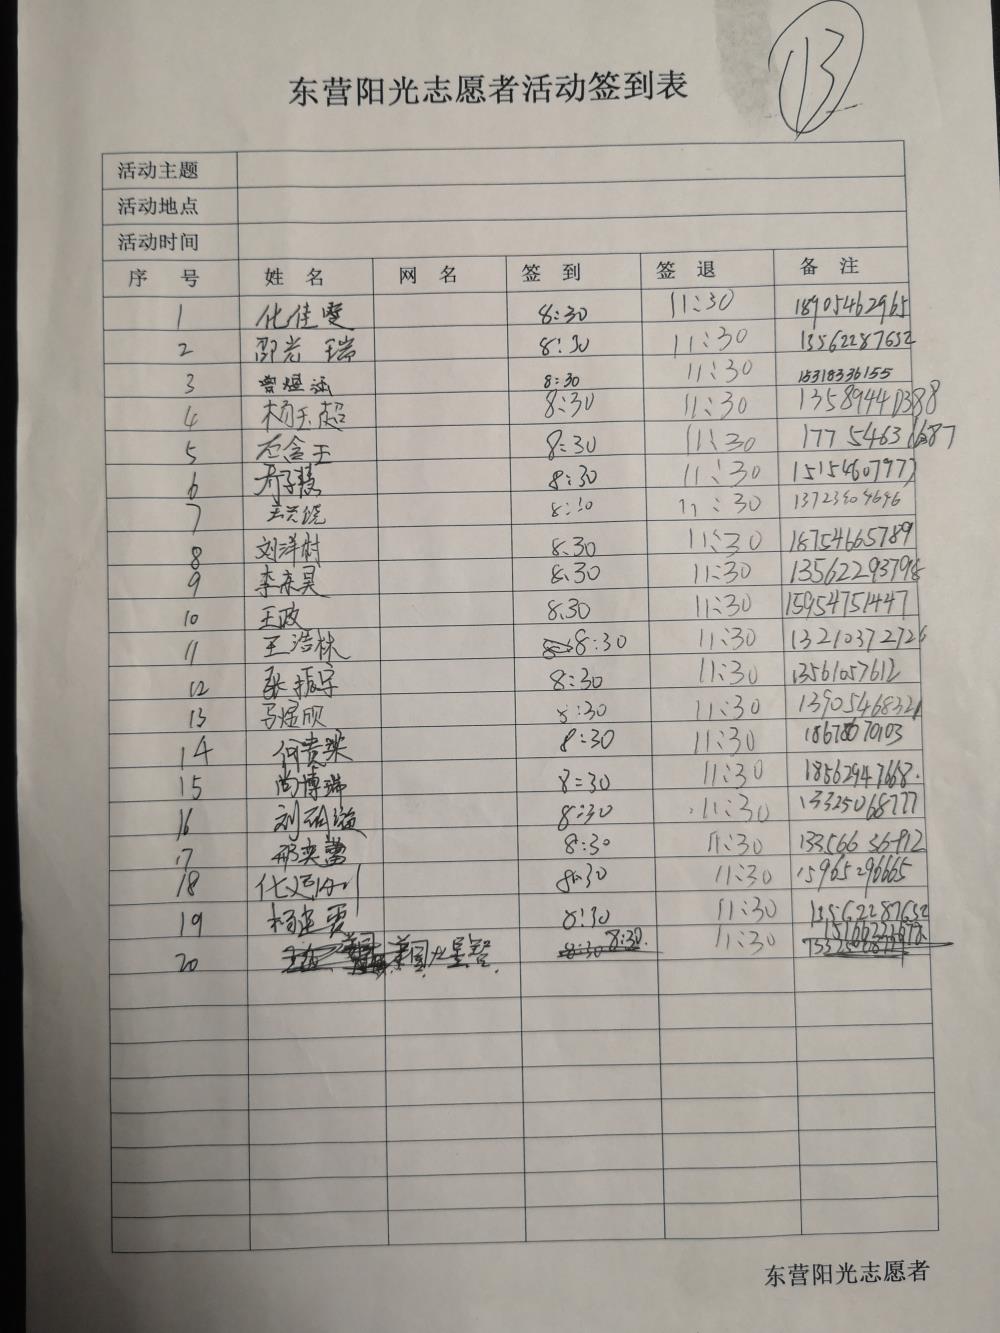 13
东营阳光志愿者活动签到表
活动主题
活动地点
活动时间
序 号 姓 名 网 名 签 到 签 退 备 注
1 化佳雯 8:30 11:30 18905462965
2 邵光瑞 8:30 11:30 13562287652
3 曹煜涵 8:30 11:30 15318336155
4 杨玉超 8:30 11:30 13589440388
5 8:30 11:30
6 8:30 11:30 15154607977
7 8:30 11:30
8 刘洋树 8.30 11:30 18754665789
9 李东昊 8.30 11:30 13562293798
10 王政 8.30 11:30 15954751447
11 王浩林 8:30 11:30 13210372726
12 张振宇 8:30 11:30 13561057612
13 马煜欣 8:30 11:30 13905468321
14 何贵梁 8:30 11:30 18678670103
15 尚博瑞 8:30 11:30 18562947668.
16 8:30 11:30 13325068777
17 8:30 11:30
18 8:30 11:30 15965296665
19 杨建雯 8:30 11:30 13562287652
20 8:30. 11:30
东营阳光志愿者